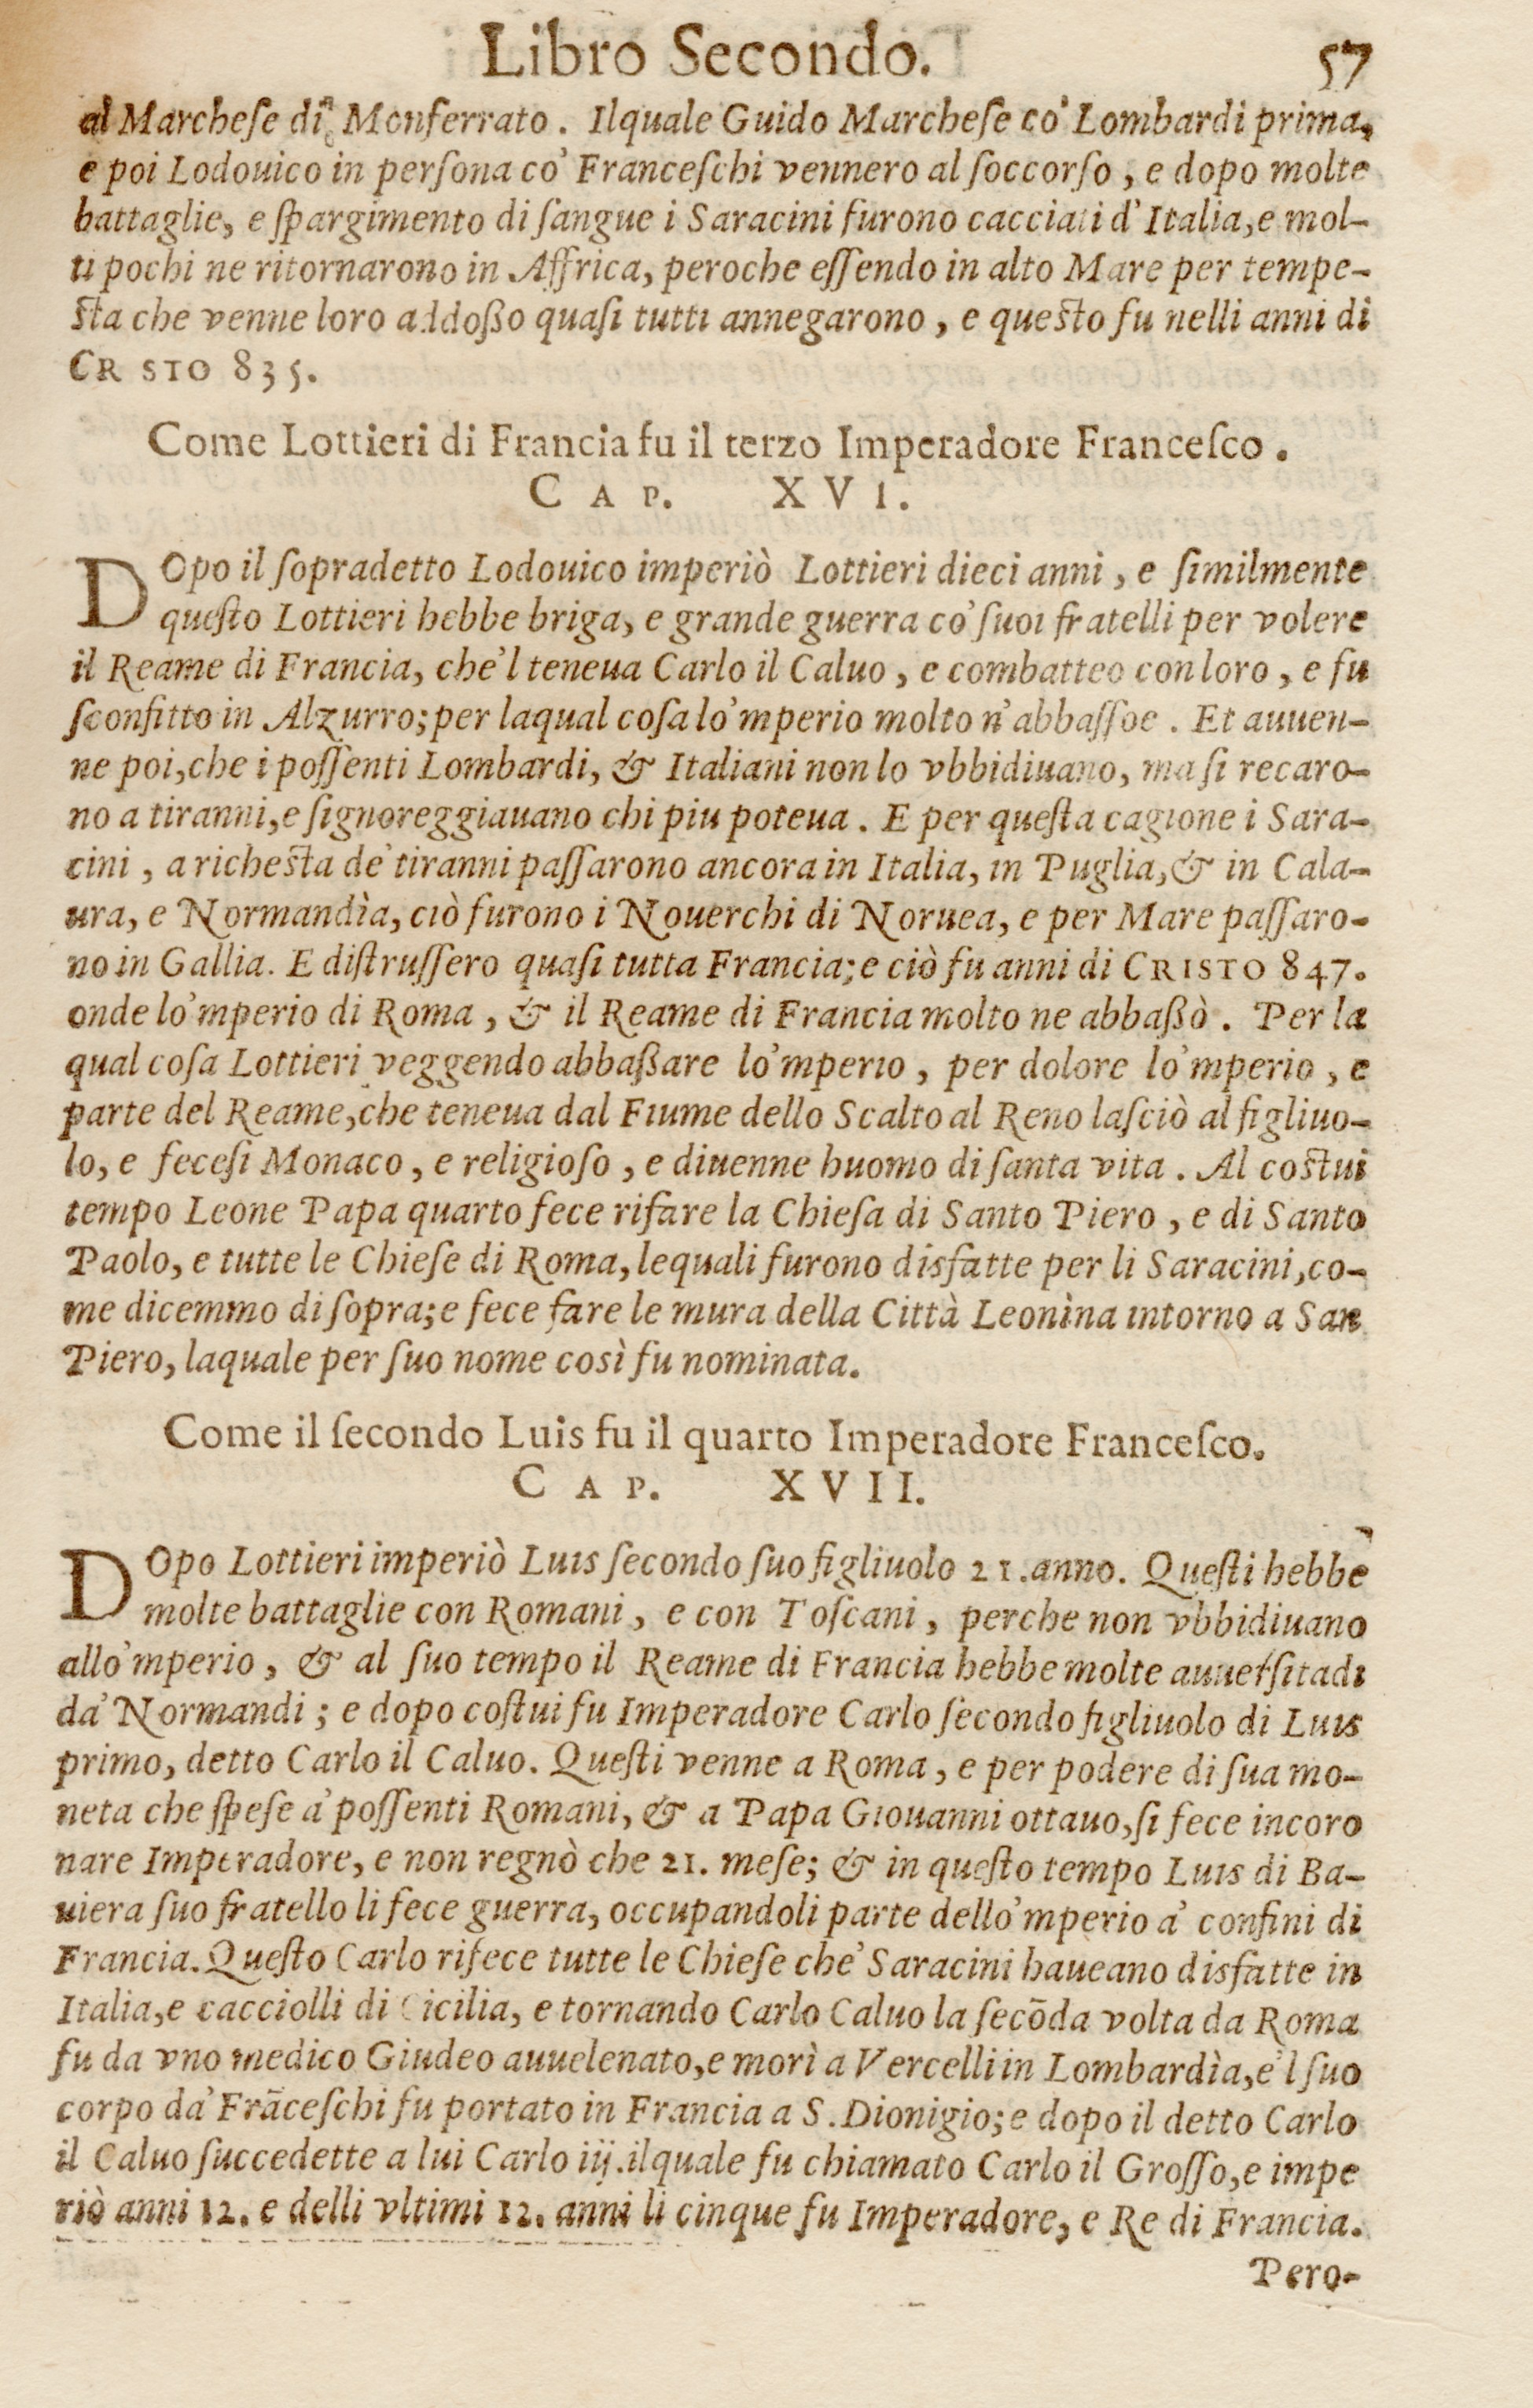 Libro Secondo. 57
al Marcheſe di Monferrato. Ilquale Guido Marcheſe co' Lombardi prima,
e poi Lodouico in perſona co' Franceſchi vennero al ſoccorſo, e dopo molte
battaglie, e ſpargimento di ſangue i Saracini furono cacciati d'Italia, e mol-
ti pochi ne ritornarono in Affrica, peroche eſſendo in alto Mare per tempe-
ſta che venne loro addoßo quaſi tutti annegarono, e queſto fu nelli anni di
CR STO 835.
Come Lottieri di Francia fu il terzo Imperadore Franceſco.
CAP. XVI.
DOpo il ſopradetto Lodouico imperiò Lottieri dieci anni, e ſimilmente
queſto Lottieri hebbe briga, e grande guerra co' ſuoi fratelli per volere
il Reame di Francia, che'l teneua Carlo il Caluo, e combatteo con loro, e fu
ſconfitto in Alzurro; per laqual coſa lo'mperio molto n'abbaſſoe. Et auuen-
ne poi, che i poſſenti Lombardi, & Italiani non lo vbbidiuano, ma ſi recaro-
no a tiranni, e ſignoreggiauano chi piu poteua. E per queſta cagione i Sara-
cini, a richeſta de' tiranni paſſarono ancora in Italia, in Puglia, & in Cala-
ura, e Normandìa, ciò furono i Nouerchi di Noruea, e per Mare paſſaro-
no in Gallia. E diſtruſſero quaſi tutta Francia; e ciò fu anni di CRISTO 847.
onde lo'mperio di Roma, & il Reame di Francia molto ne abbaßò. Per la
qual coſa Lottieri veggendo abbaßare lo'mperio, per dolore lo'mperio, e
parte del Reame, che teneua dal Fiume dello Scalto al Reno laſciò al figliuo-
lo, e feceſi Monaco, e religioſo, e diuenne huomo di ſanta vita. Al coſtui
tempo Leone Papa quarto fece rifare la Chieſa di Santo Piero, e di Santo
Paolo, e tutte le Chieſe di Roma, lequali furono disfatte per li Saracini, co-
me dicemmo di ſopra; e fece fare le mura della Città Leonìna intorno a San
Piero, laquale per ſuo nome così fu nominata.
Come il ſecondo Luis fu il quarto Imperadore Franceſco.
CAP. XVII.
DOpo Lottieri imperiò Luis ſecondo ſuo figliuolo 21. anno. Queſti hebbe
molte battaglie con Romani, e con Toſcani, perche non vbbidiuano
allo'mperio, & al ſuo tempo il Reame di Francia hebbe molte auuerſitadi
da' Normandi; e dopo coſtui fu Imperadore Carlo ſecondo figliuolo di Luis
primo, detto Carlo il Caluo. Queſti venne a Roma, e per podere di ſua mo-
neta che ſpeſe a' poſſenti Romani, & a Papa Giouanni ottauo, ſi fece incoro
nare Imperadore, e non regnò che 21. meſe; & in queſto tempo Luis di Ba-
uiera ſuo fratello li fece guerra, occupandoli parte dello'mperio a' confini di
Francia. Queſto Carlo rifece tutte le Chieſe che' Saracini haueano disfatte in
Italia, e cacciolli di Cicilia, e tornando Carlo Caluo la ſecōda volta da Roma
fu da vno medico Giudeo auuelenato, e morì a Vercelli in Lombardìa, e'l ſuo
corpo da' Frāceſchi fu portato in Francia a S. Dionigio; e dopo il detto Carlo
il Caluo ſuccedette a lui Carlo iij. ilquale fu chiamato Carlo il Groſſo, e impe
riò anni 12. e delli vltimi 12. anni li cinque fu Imperadore, e Re di Francia.
Pero-